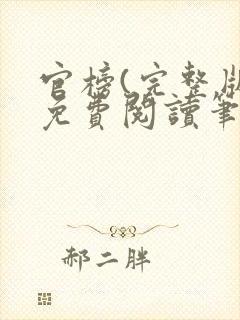 官榜(完整版
免費閱讀筆
郝二胖